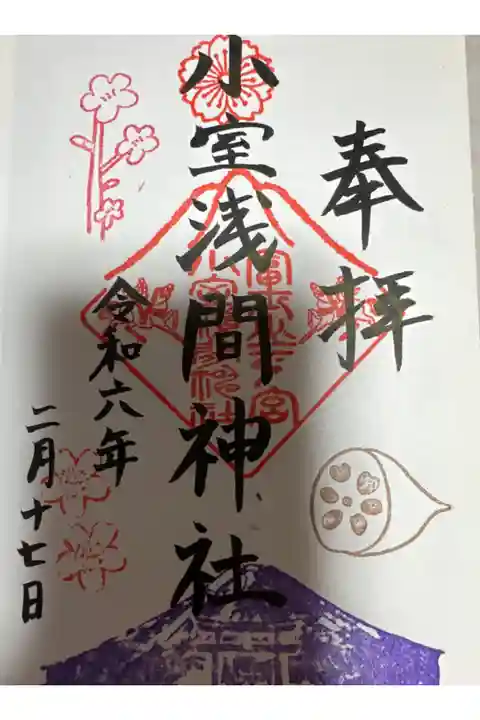 奉拝
小室浅間神社
令和六年
二月十七日